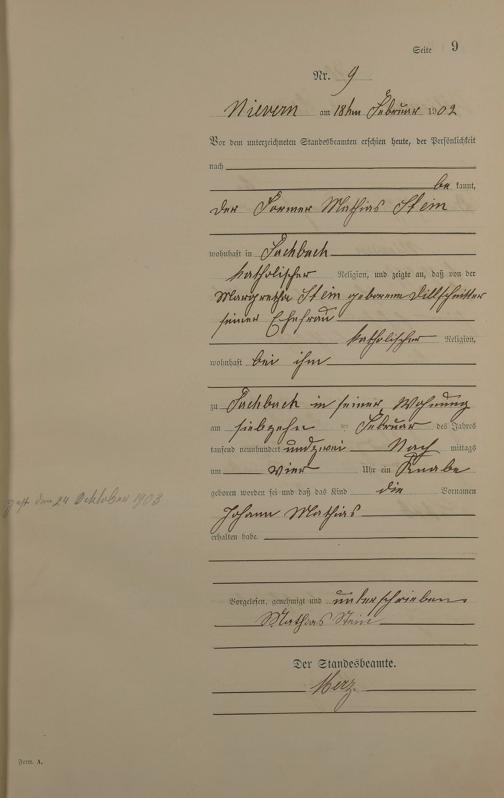 Seite 9
Nr. 9
Nievern am 18ten Februar 1902
Vor dem unterzeichneten Standesbeamten erschien heute, der Persönlichkeit
nach
be kannt,
der Former Mathias Stein
wohnhaft in Fachbach
katholischer Religion, und zeigte an, daß von der
Margretha Stein geborenen Dillschnitter
seiner Ehefrau
katholischer Religion,
wohnhaft bei ihm
zu Fachbach in seiner Wohnung
am siebzehn ten Februar des Jahres
tausend neunhundert undzwei Nach mittags
um vier Uhr ein Knabe
geboren worden sei und daß das Kind die Vornamen
Johann Mathias
erhalten habe.
gest. den 24 Oktober 1903
Vorgelesen, genehmigt und unterschrieben
Mathias Stein
Der Standesbeamte.
Merz.
Form. A.